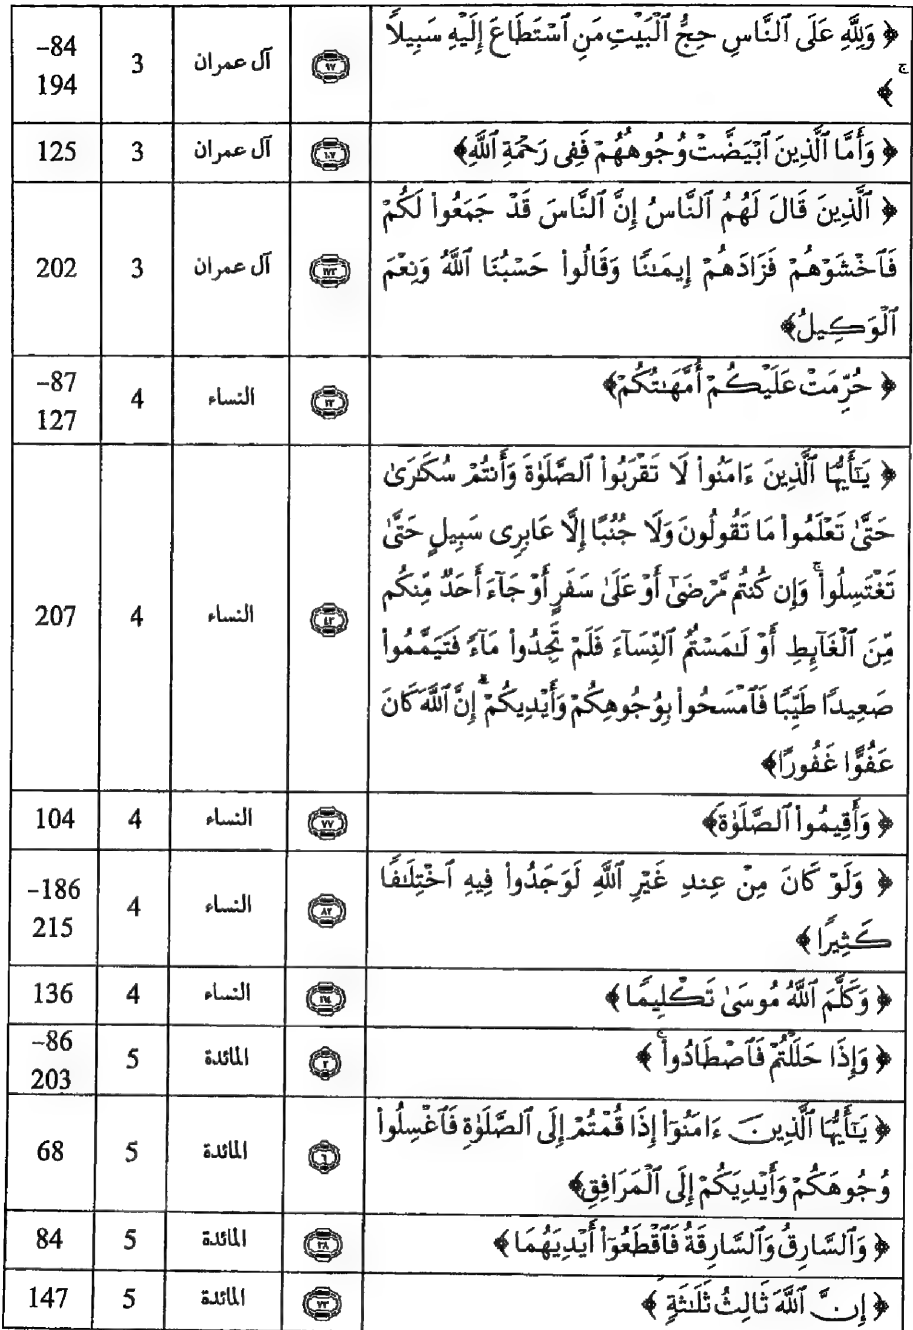 ﴿ وَلِلَّهِ عَلَى ٱلنَّاسِ حِجُّ ٱلْبَيْتِ مَنِ ٱسْتَطَاعَ إِلَيْهِ سَبِيلًا ۚ ﴾ ٩٧ آل عمران 3 84-194
﴿ وَأَمَّا ٱلَّذِينَ ٱبْيَضَّتْ وُجُوهُهُمْ فَفِى رَحْمَةِ ٱللَّهِ﴾ ١٠٧ آل عمران 3 125
﴿ ٱلَّذِينَ قَالَ لَهُمُ ٱلنَّاسُ إِنَّ ٱلنَّاسَ قَدْ جَمَعُوا۟ لَكُمْ
فَٱخْشَوْهُمْ فَزَادَهُمْ إِيمَـٰنًا وَقَالُوا۟ حَسْبُنَا ٱللَّهُ وَنِعْمَ
ٱلْوَكِيلُ﴾ ١٧٣ آل عمران 3 202
﴿ حُرِّمَتْ عَلَيْكُمْ أُمَّهَـٰتُكُمْ﴾ ٢٣ النساء 4 87-127
﴿ يَـٰٓأَيُّهَا ٱلَّذِينَ ءَامَنُوا۟ لَا تَقْرَبُوا۟ ٱلصَّلَوٰةَ وَأَنتُمْ سُكَـٰرَىٰ
حَتَّىٰ تَعْلَمُوا۟ مَا تَقُولُونَ وَلَا جُنُبًا إِلَّا عَابِرِى سَبِيلٍ حَتَّىٰ
تَغْتَسِلُوا۟ ۚ وَإِن كُنتُم مَّرْضَىٰٓ أَوْ عَلَىٰ سَفَرٍ أَوْ جَآءَ أَحَدٌ مِّنكُم
مِّنَ ٱلْغَآئِطِ أَوْ لَـٰمَسْتُمُ ٱلنِّسَآءَ فَلَمْ تَجِدُوا۟ مَآءً فَتَيَمَّمُوا۟
صَعِيدًا طَيِّبًا فَٱمْسَحُوا۟ بِوُجُوهِكُمْ وَأَيْدِيكُمْ ۗ إِنَّ ٱللَّهَ كَانَ
عَفُوًّا غَفُورًا﴾ ٤٣ النساء 4 207
﴿ وَأَقِيمُوا۟ ٱلصَّلَوٰةَ﴾ ٧٧ النساء 4 104
﴿ وَلَوْ كَانَ مِنْ عِندِ غَيْرِ ٱللَّهِ لَوَجَدُوا۟ فِيهِ ٱخْتِلَـٰفًا
كَثِيرًا ﴾ ٨٢ النساء 4 186-215
﴿ وَكَلَّمَ ٱللَّهُ مُوسَىٰ تَكْلِيمًا ﴾ ١٦٤ النساء 4 136
﴿ وَإِذَا حَلَلْتُمْ فَٱصْطَادُوا۟ ۚ ﴾ ٢ المائدة 5 86-203
﴿ يَـٰٓأَيُّهَا ٱلَّذِينَ ءَامَنُوٓا۟ إِذَا قُمْتُمْ إِلَى ٱلصَّلَوٰةِ فَٱغْسِلُوا۟
وُجُوهَكُمْ وَأَيْدِيَكُمْ إِلَى ٱلْمَرَافِقِ﴾ ٦ المائدة 5 68
﴿ وَٱلسَّارِقُ وَٱلسَّارِقَةُ فَٱقْطَعُوٓا۟ أَيْدِيَهُمَا ﴾ ٣٨ المائدة 5 84
﴿ إِنَّ ٱللَّهَ ثَالِثُ ثَلَـٰثَةٍ ﴾ ٧٣ المائدة 5 147